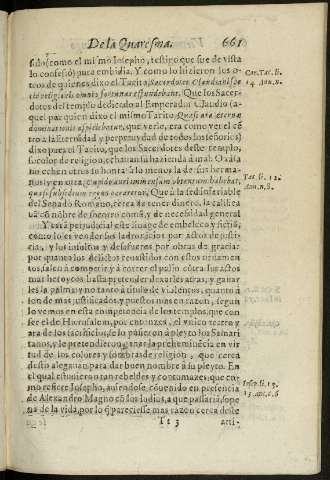 De la Quaresma. 661
sido (como el mismo Iosepho, testigo que fue de vista
lo confessò) pura embidia. Y como lo hizieron los o-
tros de quienes dixo el Tacito, Sacerdotes
religionis omnes fortunas Que los Sacer-
dotes del templo dedicado al Emperador Claudio (a-
quel par quien dixo el mismo Tacito Quasi arx eternæ
dominationis aspiciebatur, que verle, era como ver el ce-
tro a la Eternidad y perpetuydad de todos los señorios)
dixo pues el Tacito, que los Sacerdotes deste templo,
so color de religion, echauan su hazienda à mal. O assi
no echen otros la honra à lo menos la de sus herma-
nos y en otra, Cupido auri immensum obtentum habebat,
quasi subsidium regno pararetur. Que à la sed insaciable
del Senado Romano, cerca de tener dinero, la califica
uã cõ nõbre de socorro comũ, y de necessidad general
Y será perjudicial este linage de embelecos y fictiõ,
como lo es vender los ladronicios por actos de justi-
cia, y los insultos y desafueros por obras de gracia:
por quanto los delictos reuestidos con estos ornamen-
tos, salen à competir y à correr el palio cõ los actos
mas heroycos hasta pretender dexarles atras, y ganar
les la palma: y no tanto à titulo de violentos, quanto à
son de mas justificados, y puestos más en razon, segun
lo vemos en esta competencia de los templos, que con
ser el de Hierusalem, por entonces, el vnico terreno y
ara de los sacrificios, se lo pusieron à pleyto los Samari
tanos, y le pretendieron ganar la preheminencia en vir
tud de los colores y sombras de religion, que cerca
desto alegauan para dar buen nombre à su pleyto. En
el qual estuuieron tan rebeldes y contumazes, que co-
mo refiere Iosepho, auiendose conuenido en presencia
de Alexandro Magno cõ los Iudios, a que passaria, so pe
na de la vida, por lo q̃ pareciesse mas razon cerca deste
Tt 3 arti-
Cor. Tac. li.
14. An. n.
Tac. li. 12.
An. n. 8.
Iosep. li. 11.
13. ant. c. 6